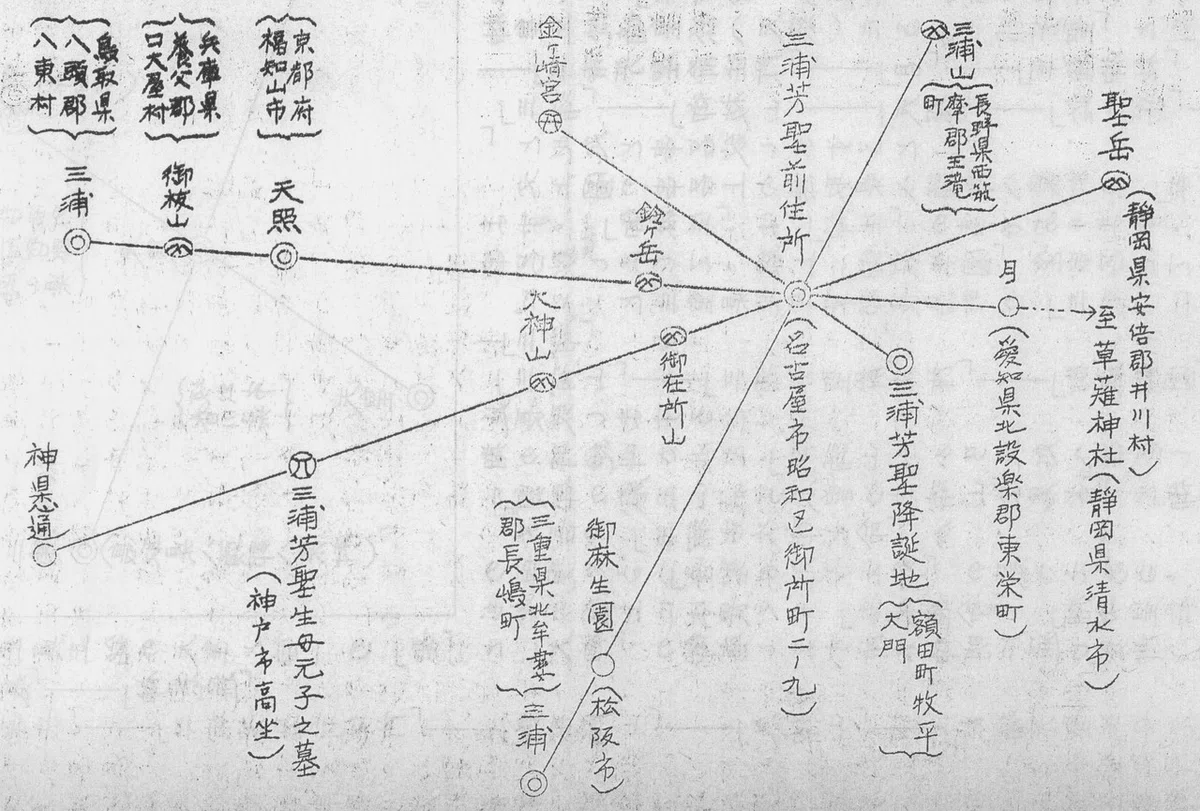 聖岳
（静岡県安倍郡井川村）
三浦山
長野県西筑
摩郡王滝
町
月
（愛知県北設楽郡東栄町）
至草薙神社（静岡県清水市）
三浦芳聖前住所
（名古屋市昭和区御所町二ノ九）
三浦芳聖降誕地
額田町牧平
大門
金ヶ崎宮
鈴ヶ岳
御在所山
大神山
御麻生園
（松阪市）
三重県北牟婁
郡長嶋町
三浦
京都府
福知山市
天照
兵庫県
養父郡
口大屋村
御祓山
鳥取県
八頭郡
八東村
三浦
三浦芳聖生母元子之墓
（神戸市高坐）
神県通